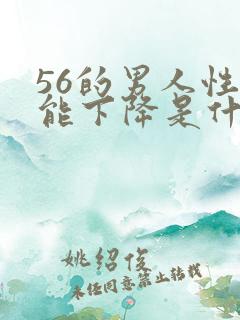 56的男人性
能下降是什
姚绍俊
未经同意禁止转载